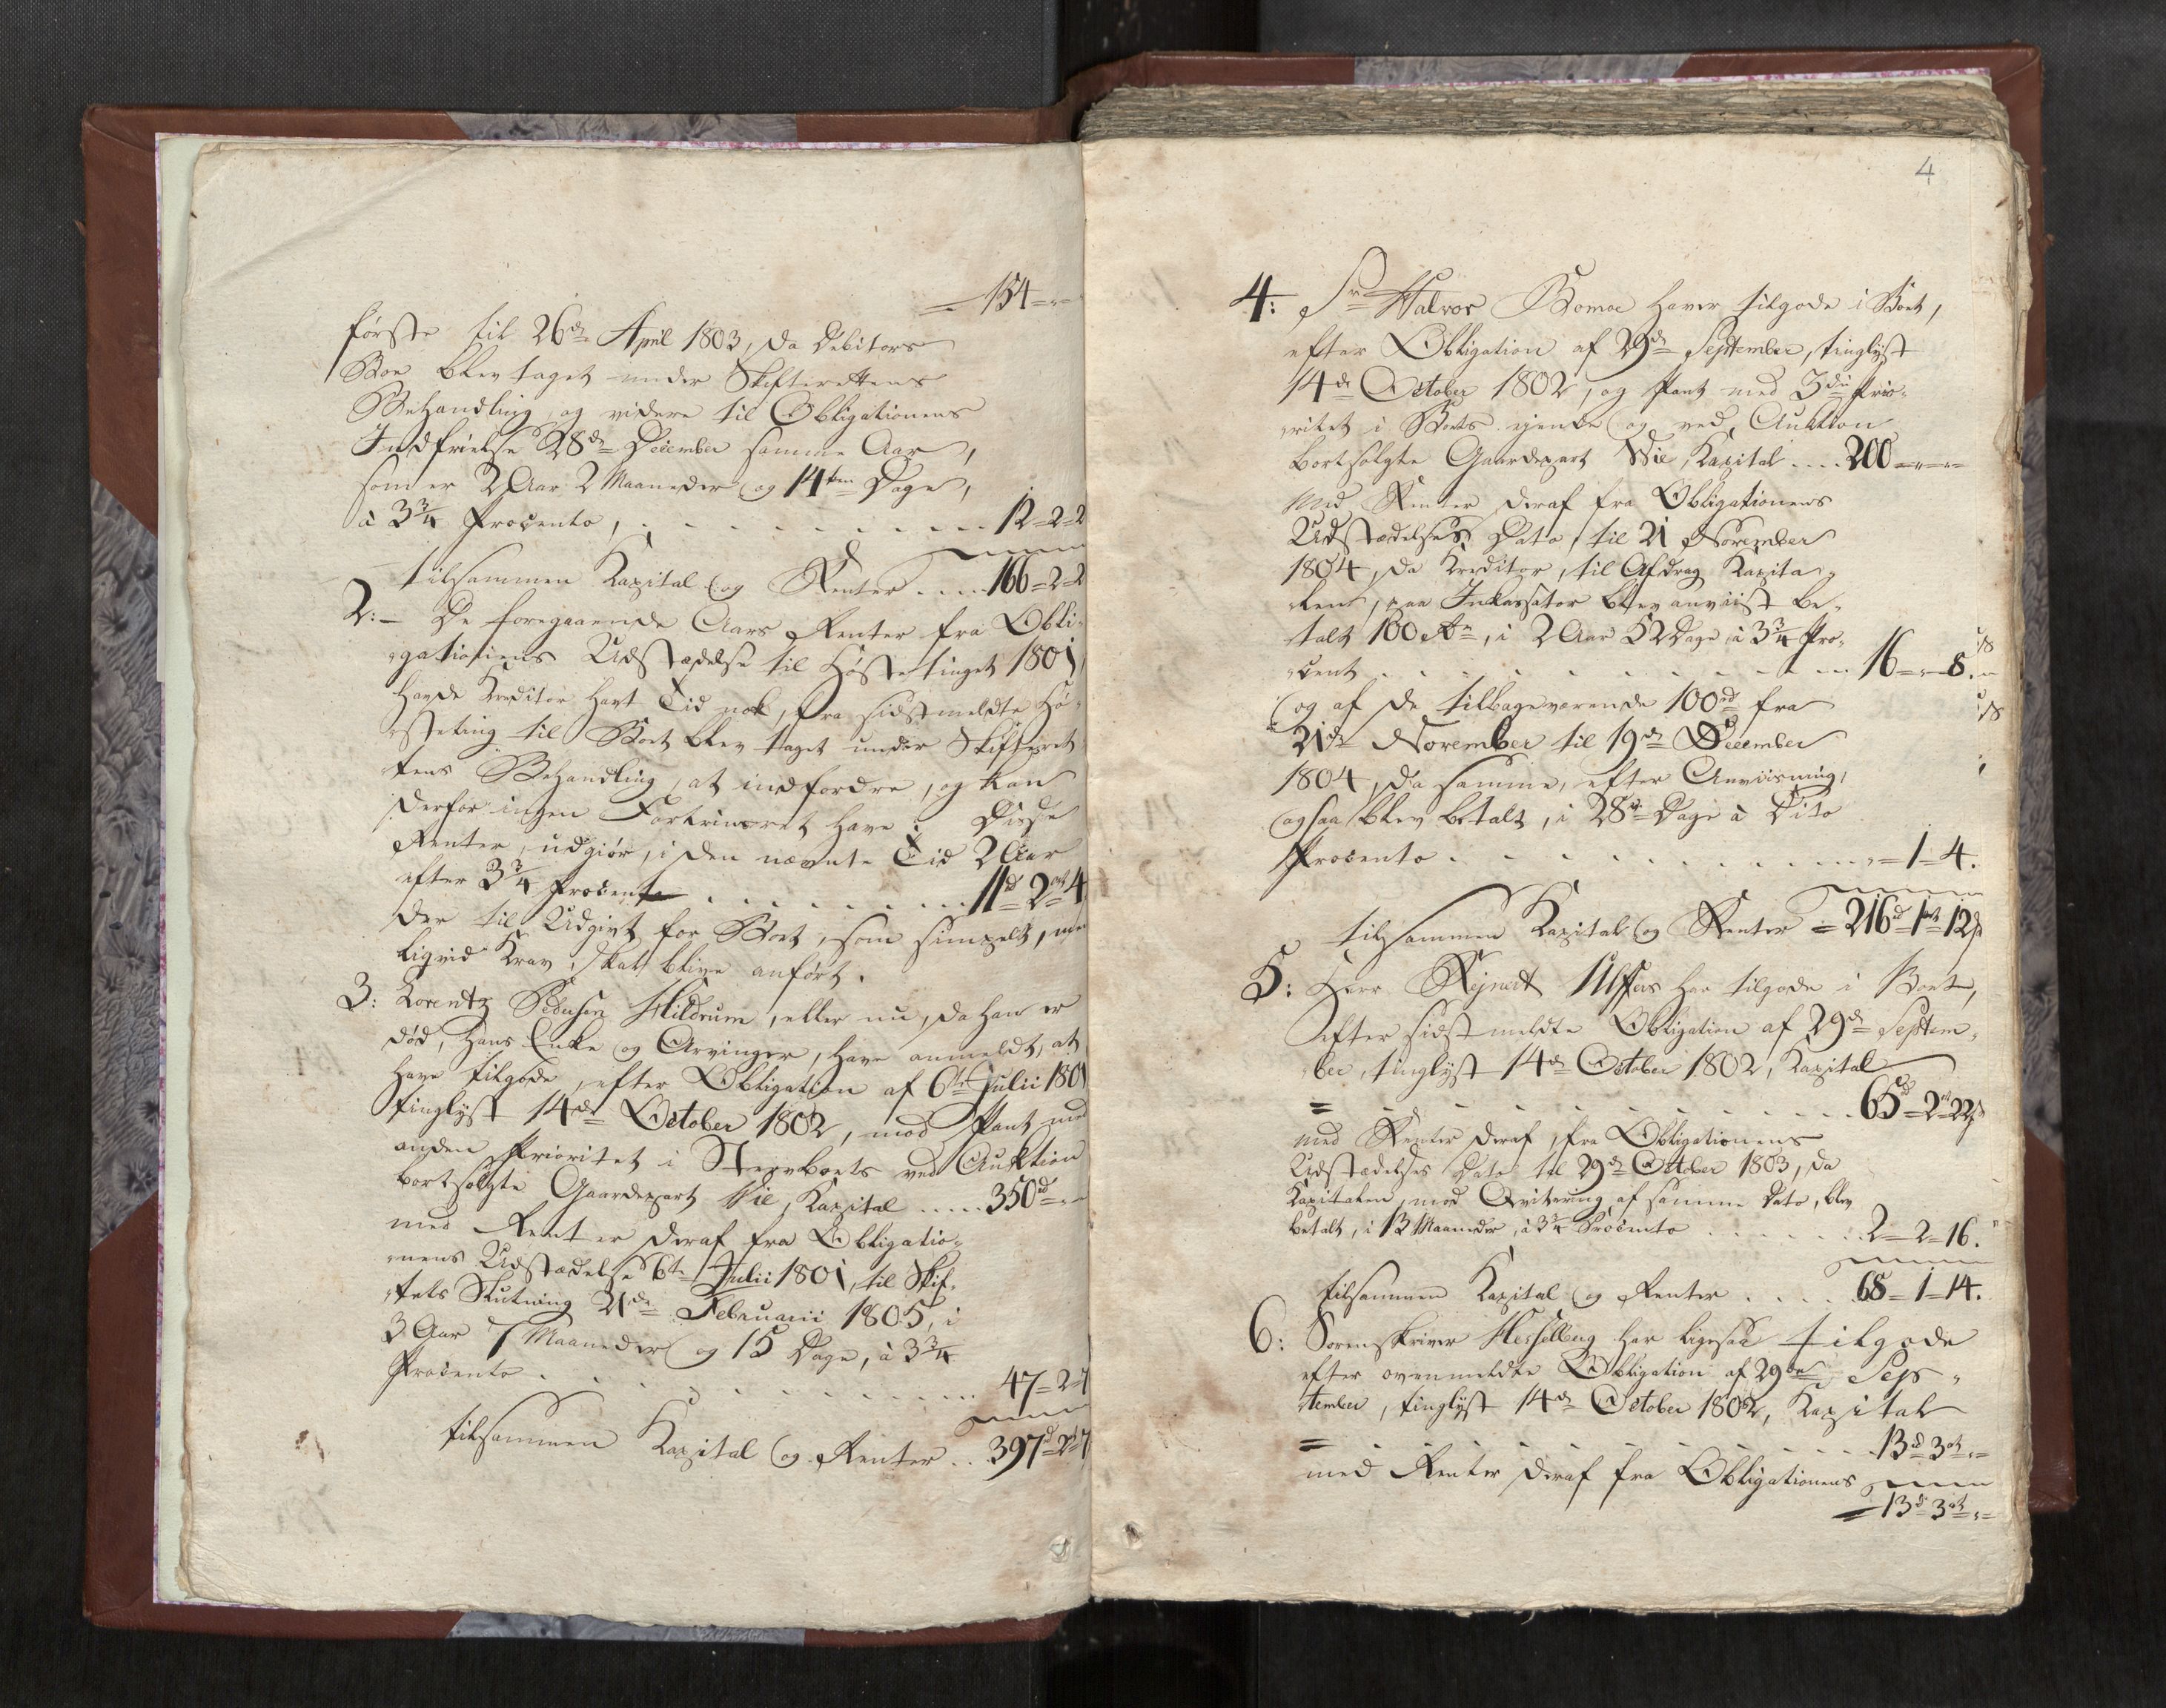 = 154 = " =
første til 26de April 1803, da Debitors
Boe blev taget under Skifterettens
Behandling, og videre til Obligationens
Indfrielse 28de December samme Aar,
som er 2 Aar 2 Maaneder og 14ten Dage,
à 3¾ Procento, . . . . . . . . . . 12 = 2 = 2
tilsammen Kapital og Renter . . . . 166 = 2 = 2
2: – De foregaaende Aars Renter fra Obli-
gationens Udstædelse til Høstetinget 1801,
havde Kreditor havt Tid nok, fra sidstmeldte Hø-
steting til Boet blev taget under Skifteret-
tens Behandling, at indfordre, og kan
derfor ingen Fortrinsret have. Disse
Renter, udgiør, i den nævnte Tid 2 Aar
efter 3¾ Procento . . . . . . . . . 11d = 2ort 4
der til Udgivt for Boet, som simpelt, men
liqvid Krav, skal blive anført.
3: Lorentz Pedersen Hildrum, eller nu, da han er
død, Hans Enke og Arvinger, have anmeldt, at
have tilgode, efter Obligation af 6te Julii 1801
tinglyst 14de October 1802, mod Pant med
anden Prioritet i Stervboets ved Auktion
bortsolgte Gaardepart Vie, Kapital . . . . . 350d = " =
med Renter deraf fra Obligatio-
nens Udstædelse 6te Julii 1801, til Skif-
tets Slutning 21de Februarii 1805, i
3 Aar 7 Maaneder og 15 Dage, à 3¾
Procento . . . . . . . . . . . 47 = 2 = 7
tilsammen Kapital og Renter . . 397d = 2 = 7
4
4: Sr Halvor Bomoe haver tilgode i Boet,
efter Obligation af 29de September, tinglyst
14de October 1802, og Pant med 3die Prio-
ritet i Boets eiende og ved Auktion
bortsolgte Gaardepart Vie, Kapital . . . . 200 = " = " =
Med Renter deraf fra Obligationens
Udstædelses Dato, til 21 November
1804, da Kreditor, til Afdrag Kapita-
len, paa Inkassator blev anviist be-
talt 100 Rdr, i 2 Aar 52 Dage à 3¾ Pro-
cent . . . . . . . . . . . 16 = " = 8.
og af de tilbageværende 100rd fra
21de November til 19de December
1804, da samme, efter Anviisning,
ogsaa blev betalt, i 28ve Dage à Dito
Procento . . . . . . . . . . . . " = 1 = 4.
tilsammen Kapital og Renter = 216d 1ort 12s
5: Herr Rejnert Ulffers har tilgode i Boet,
efter sidstmeldte Obligation af 29de Septem-
ber, tinglyst 14de October 1802, Kapital
= . . . . . . . . . . . . . 65d = 2ort 22s
med Renter deraf, fra Obligationens
Udstædelses Dato til 29de October 1803, da
Kapitalen, mod Qvitering af samme Dato, blev
betalt, i 13 Maaneder, à 3¾ Procento . . . . . . . 2 = 2 = 16.
tilsammen Kapital og Renter . . . . 68 = 1 = 14.
6: Sorenskriver Hesselberg har ligesaa tilgode
efter ovenmeldte Obligation af 29de Sep-
tember, tinglyst 14de October 1802, Kapital
= . . . . . . . . . . . . . 13d 3ort " =
med Renter deraf fra Obligationens
= 13d 3ort " =